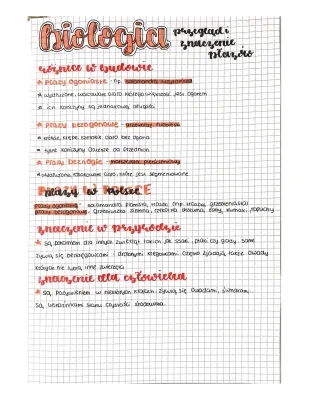 biologia
przegląd i
znaczenie
płazów
różnice w budowie
* Płazy ogoniaste - np. salamandra plamista
* wydłużone, walcowate ciało którego większość jest ogonem
* ich kończyny są jednakowej długości
* Płazy bezogonowe -
* krótkie, krępe, szerokie ciało bez ogona
* tylne kończyny dłuższe od przednich
* Płazy beznogie - marszczelec pierścieniowy
* wydłużone, robakowate ciało, które jest segmentowane
płazy w Polsce
Płazy ogoniaste - salamandra plamista, traszki (np. traszka grzebieniasta)
płazy bezogonowe - grzebiuszka ziemna, rzekotka drzewna, żaby, kumaki, ropuchy
znaczenie w przyrodzie
* są pokarmem dla innych zwierząt takich jak ssaki, ptaki czy gady. same
żywią się bezkręgowcami i drobnymi kręgowcami. Często zjadają także owady
których nie lubią inne zwierzęta
znaczenie dla człowieka
* są pożywieniem w niektórych krajach. żywią się owadami, ślimakami.
są wskaźnikami stanu czystości środowiska.